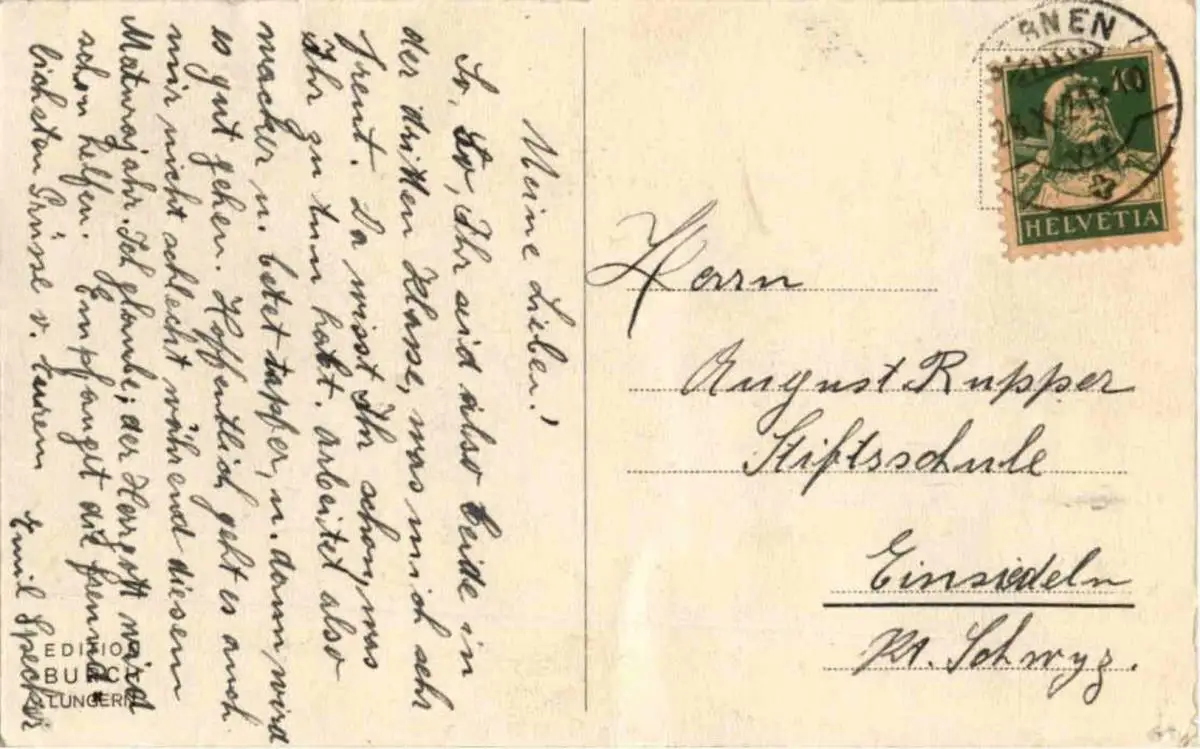 Meine Lieben!
So, So, Ihr seid also beide in
der dritten Klasse, was mich sehr
freut. Da wisst Ihr schon, was
Ihr zu tun habt. arbeitet also
wacker u. betet tapfer, u. dann wird
es gut gehen. Hoffentlich geht es auch
mir nicht schlecht während diesem
Maturajahr. Ich glaube, der Herrgott wird
schon helfen. Empfanget die freund-
lichsten Grüsse v. eurem
Emil Specker
EDITION
BURCH
LUNGERN
RNEN
10
HELVETIA
Herrn
August Rupper
Stiftsschule
Einsiedeln
Kt. Schwyz.